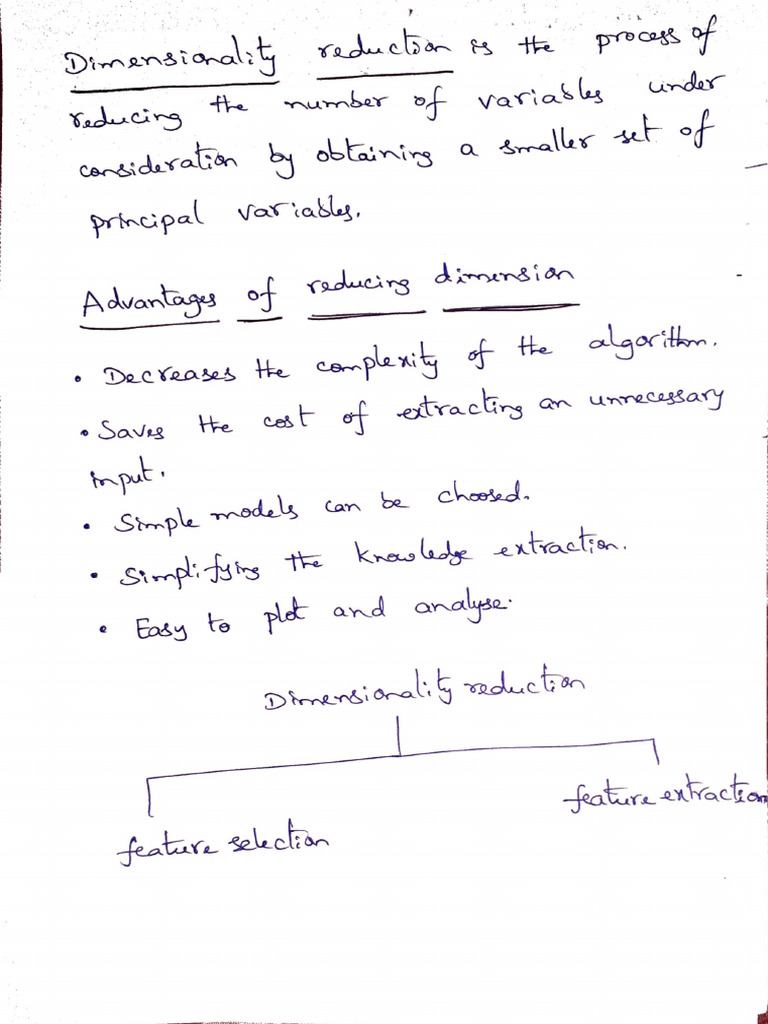 Dimensionality reduction is the process of
reducing the number of variables under
consideration by obtaining a smaller set of
principal variables.
Advantages of reducing dimension
• Decreases the complexity of the algorithm.
• Saves the cost of extracting an unnecessary
input.
• Simple models can be choosed.
• Simplifying the knowledge extraction.
• Easy to plot and analyse.
Dimensionality reduction
feature extraction
feature selection